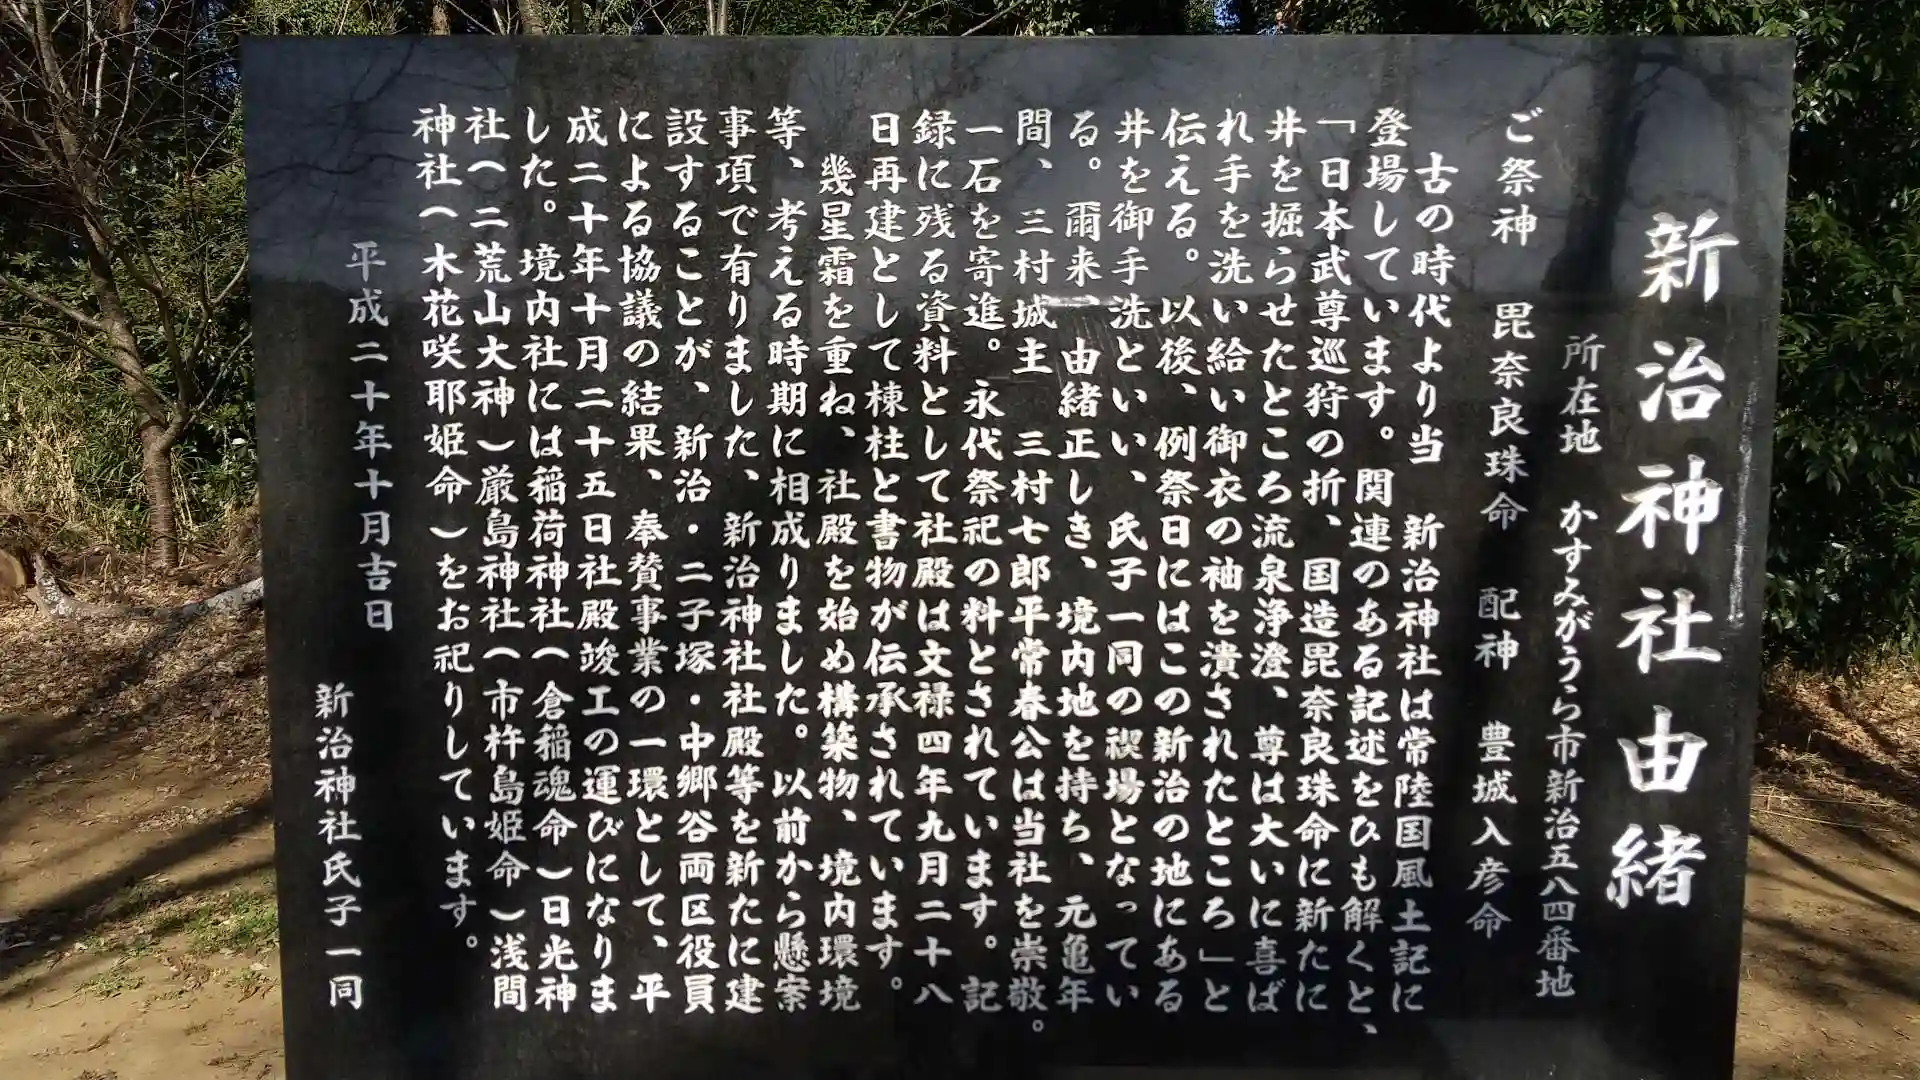 新治神社由緒
所在地　かすみがうら市新治五八四番地
ご祭神　毘奈良珠命　配神　豊城入彦命
古の時代より当　新治神社は常陸国風土記に
登場しています。関連のある記述をひも解くと、
「日本武尊巡狩の折、国造毘奈良珠命に新たに
井を掘らせたところ流泉浄澄、尊は大いに喜ば
れ手を洗い給い御衣の袖を漬されたところ」と
伝える。以後、例祭日にはこの新治の地にある
井を御手洗といい、氏子一同の禊場となってい
る。爾来、由緒正しき、境内地を持ち、元亀年
間、三村城主　三村七郎平常春公は当社を崇敬。
一石を寄進。永代祭祀の料とされています。記
録に残る資料として社殿は文禄四年九月二十八
日再建として棟柱と書物が伝承されています。
幾星霜を重ね、社殿を始め構築物、境内環境
等、考える時期に相成りました。以前から懸案
事項で有りました、新治神社社殿等を新たに建
設することが、新治・二子塚・中郷谷両区役員
による協議の結果、奉賛事業の一環として、平
成二十年十月二十五日社殿竣工の運びになりま
した。境内社には稲荷神社（倉稲魂命）日光神
社（二荒山大神）厳島神社（市杵島姫命）浅間
神社（木花咲耶姫命）をお祀りしています。
平成二十年十月吉日
新治神社氏子一同